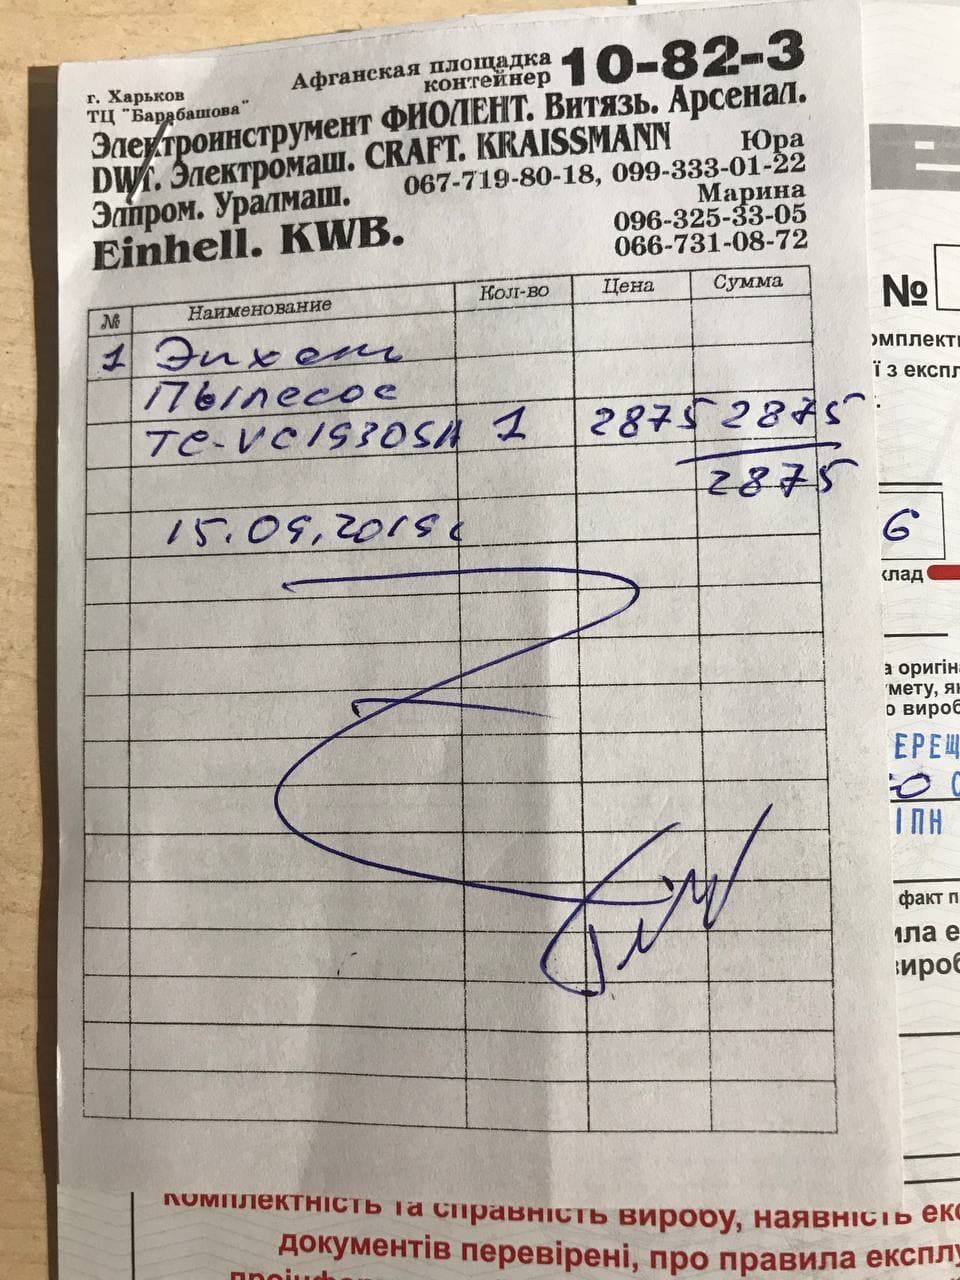 г. Харьков
ТЦ "Барабашова"
Афганская площадка
контейнер 10-82-3
Электроинструмент ФИОЛЕНТ. Витязь. Арсенал.
DWT. Электромаш. CRAFT. KRAISSMANN
Элпром. Уралмаш.
Einhell. KWB.
Юра
067-719-80-18, 099-333-01-22
Марина
096-325-33-05
066-731-08-72
№ Наименование Кол-во Цена Сумма
1 Энхель
Пылесос
TC-VC1930SA 1 2875 2875
2875
15.09.2019г
№
омплекті
ї з експл
6
клад
а оригін
умету, як
о вироб
ЕРЕЩ
ІПН
факт п
ила е
вироб
Комплектність та справність виробу, наявність екс
документів перевірені, про правила експлу